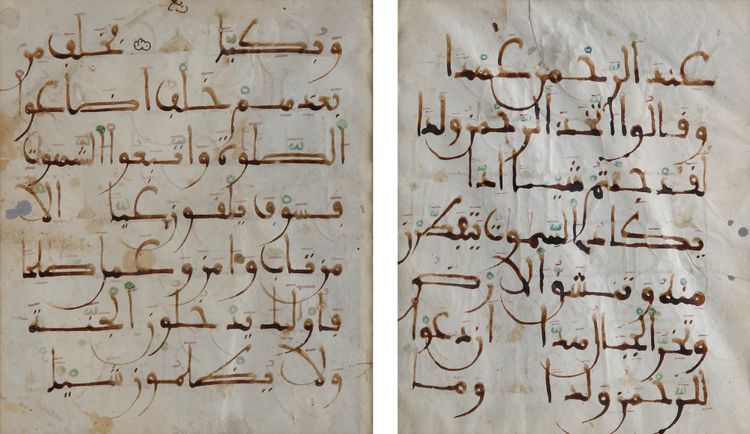 وبكيا فخلف من
بعدهم خلف اضاعوا
الصلوة واتبعوا الشهوت
فسوف يلقون غيا الا
من تاب وامن وعمل صلحا
فاولئك يدخلون الجنة
ولا يظلمون شيئا
عند الرحمن عهدا
وقالوا اتخذ الرحمن ولدا
لقد جئتم شيئا ادا
يكاد السموت يتفطرن
منه وتنشق الارض
وتخر الجبال هدا ان دعوا
للرحمن ولدا وما